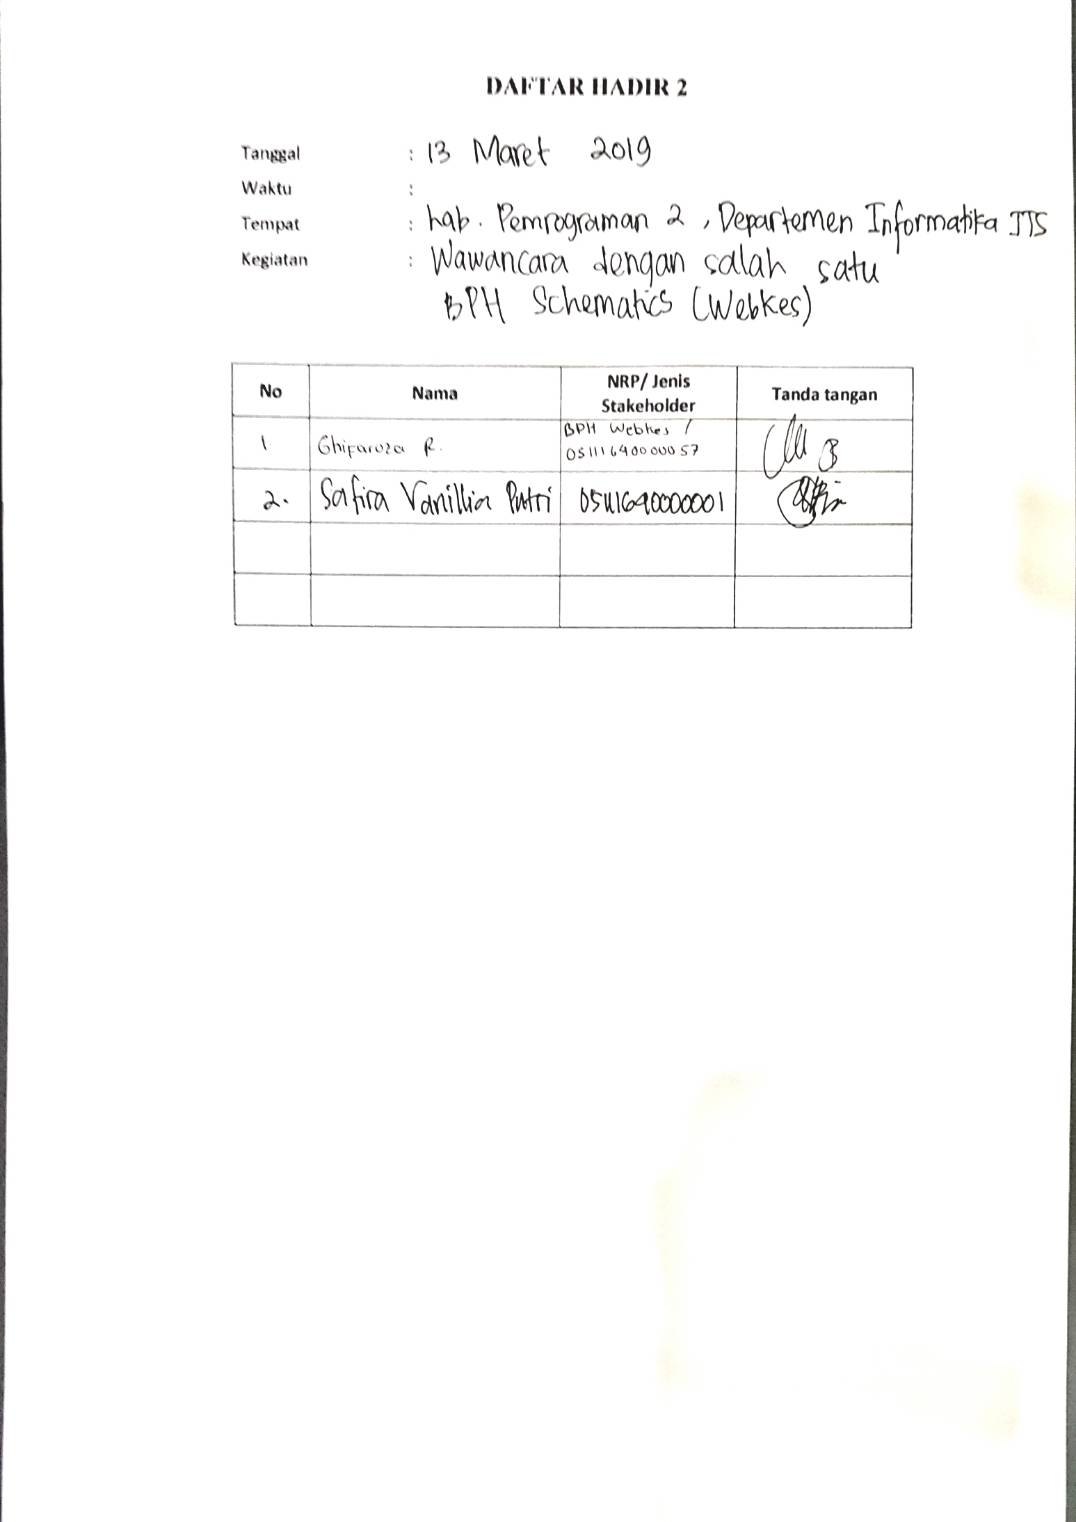 DAFTAR HADIR 2
Tanggal : 13 Maret 2019
Waktu :
Tempat : Lab. Pemrograman 2, Departemen Informatika ITS
Kegiatan : Wawancara dengan salah satu
BPH Schematics (Webkes)
No Nama NRP/ Jenis Stakeholder Tanda tangan
1 Ghifaroza R. BPH Webkes / 05111640000057
2. Safira Vanillia Putri 05111640000001